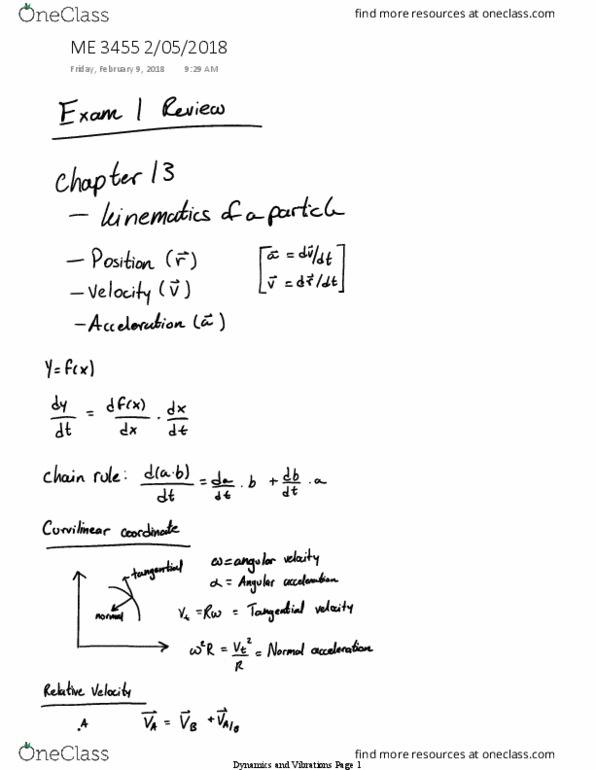 OneClass find more resources at oneclass.com
ME 3455 2/05/2018
Friday, February 9, 2018 9:29 AM
Exam 1 Review
Chapter 13
- kinematics of a particle
- Position (r⃗) [a⃗ = dv⃗/dt
- Velocity (v⃗) v⃗ = dr⃗/dt]
- Acceleration (a⃗)
Y = f(x)
dy/dt = df(x)/dx · dx/dt
Chain rule: d(a·b)/dt = da/dt · b + db/dt · a
Curvilinear coordinate
tangential
normal
ω = angular velocity
α = Angular acceleration
V_t = Rω = Tangential velocity
ω²R = V_t²/R = Normal acceleration
Relative Velocity
.A V⃗_A = V⃗_B + V⃗_A/B
OneClass find more resources at oneclass.com
Dynamics and Vibrations Page 1